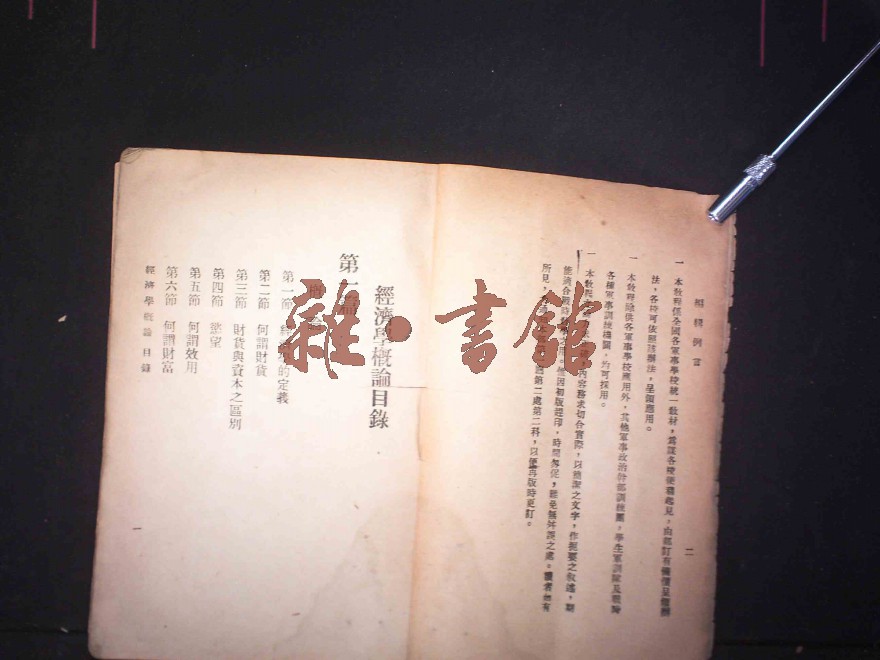 編輯例言
一 本教程係全國各軍事學校統一教材，為謀各校便利起見，由部訂有備價呈領辦
法，各校可依照該辦法，呈領應用。
一 本教程除供各軍事學校應用外，其他軍事政治幹部訓練團，學生軍訓隊及戰時
各種軍事訓練機關，均可採用。
一 本教程 內容務求切合實際，以簡潔之文字，作扼要之敘述，期
能適合戰時 惟因初版趕印，時間匆促，難免無舛誤之處。讀者如有
所見， 第二處第二科，以便再版時更訂。
二
經濟學概論目錄
第一篇 概論
第一節 經濟學的定義
第二節 何謂財貨
第三節 財貨與資本之區別
第四節 慾望
第五節 何謂效用
第六節 何謂財富
經濟學概論 目錄
一
雜·書館